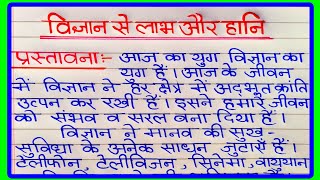 विज्ञान से लाभ और हानि
प्रस्तावना:- आज का युग विज्ञान का
युग हैं। आज के जीवन
में विज्ञान ने हर क्षेत्र में अदभुत क्रांति
उत्पन कर रखी हैं। इसने हमारे जीवन
को संभव व सरल बना दिया हैं।
विज्ञान ने मानव की सुख-
सुविधा के अनेक साधन जुटाएँ हैं।
टेलीफोन, टेलीविजन, सिनेमा, वायुयान